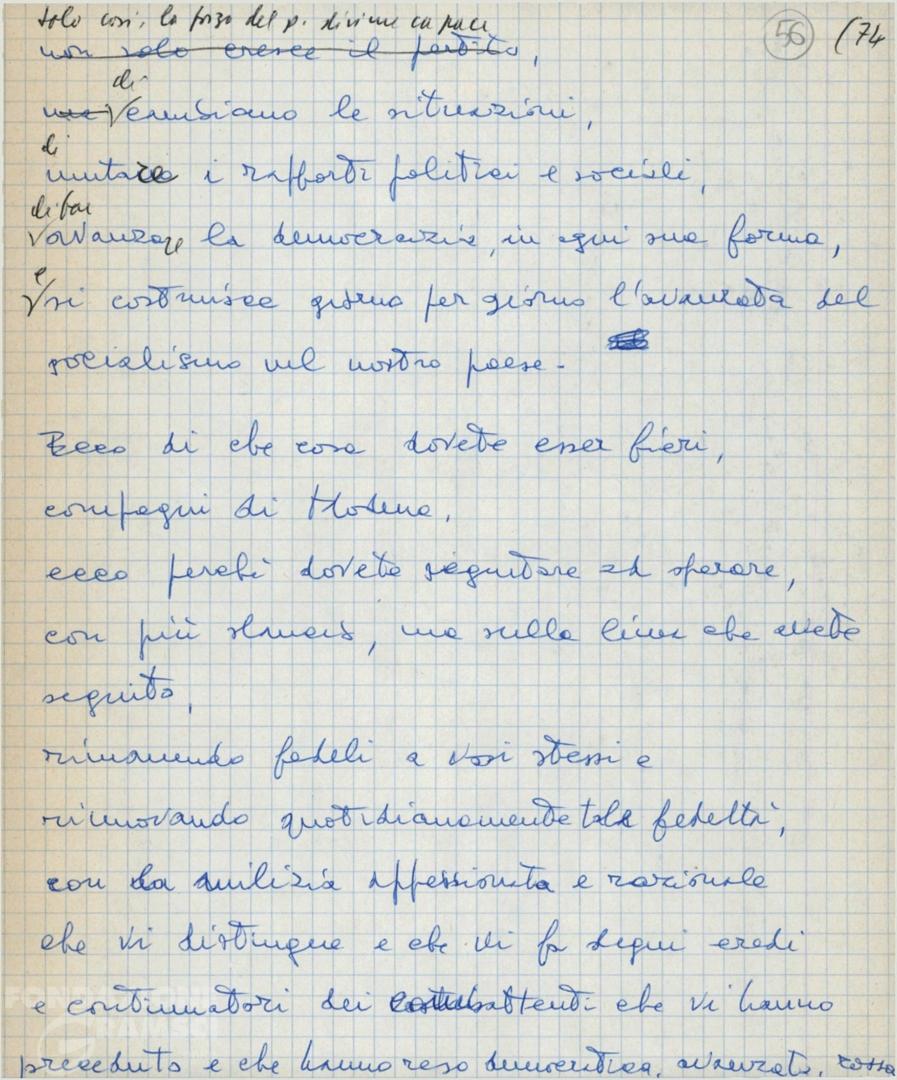 56 (74
solo così, la forza del p. diviene capace
non solo cresce il partito,
di
ma cambiano le situazioni,
di
mutare i rapporti politici e sociali,
di far
avanzare la democrazia, in ogni sua forma,
e
si costruisce giorno per giorno l'avanzata del
socialismo nel nostro paese.
Ecco di che cosa dovete esser fieri,
compagni di Modena,
ecco perché dovete seguitare ad operare,
con più slancio, ma sulla linea che avete
seguito,
rimanendo fedeli a voi stessi e
rinnovando quotidianamente tale fedeltà,
con la milizia appassionata e razionale
che vi distingue e che vi fa degni eredi
e continuatori dei combattenti che vi hanno
preceduto e che hanno reso democratica, avanzata, rossa